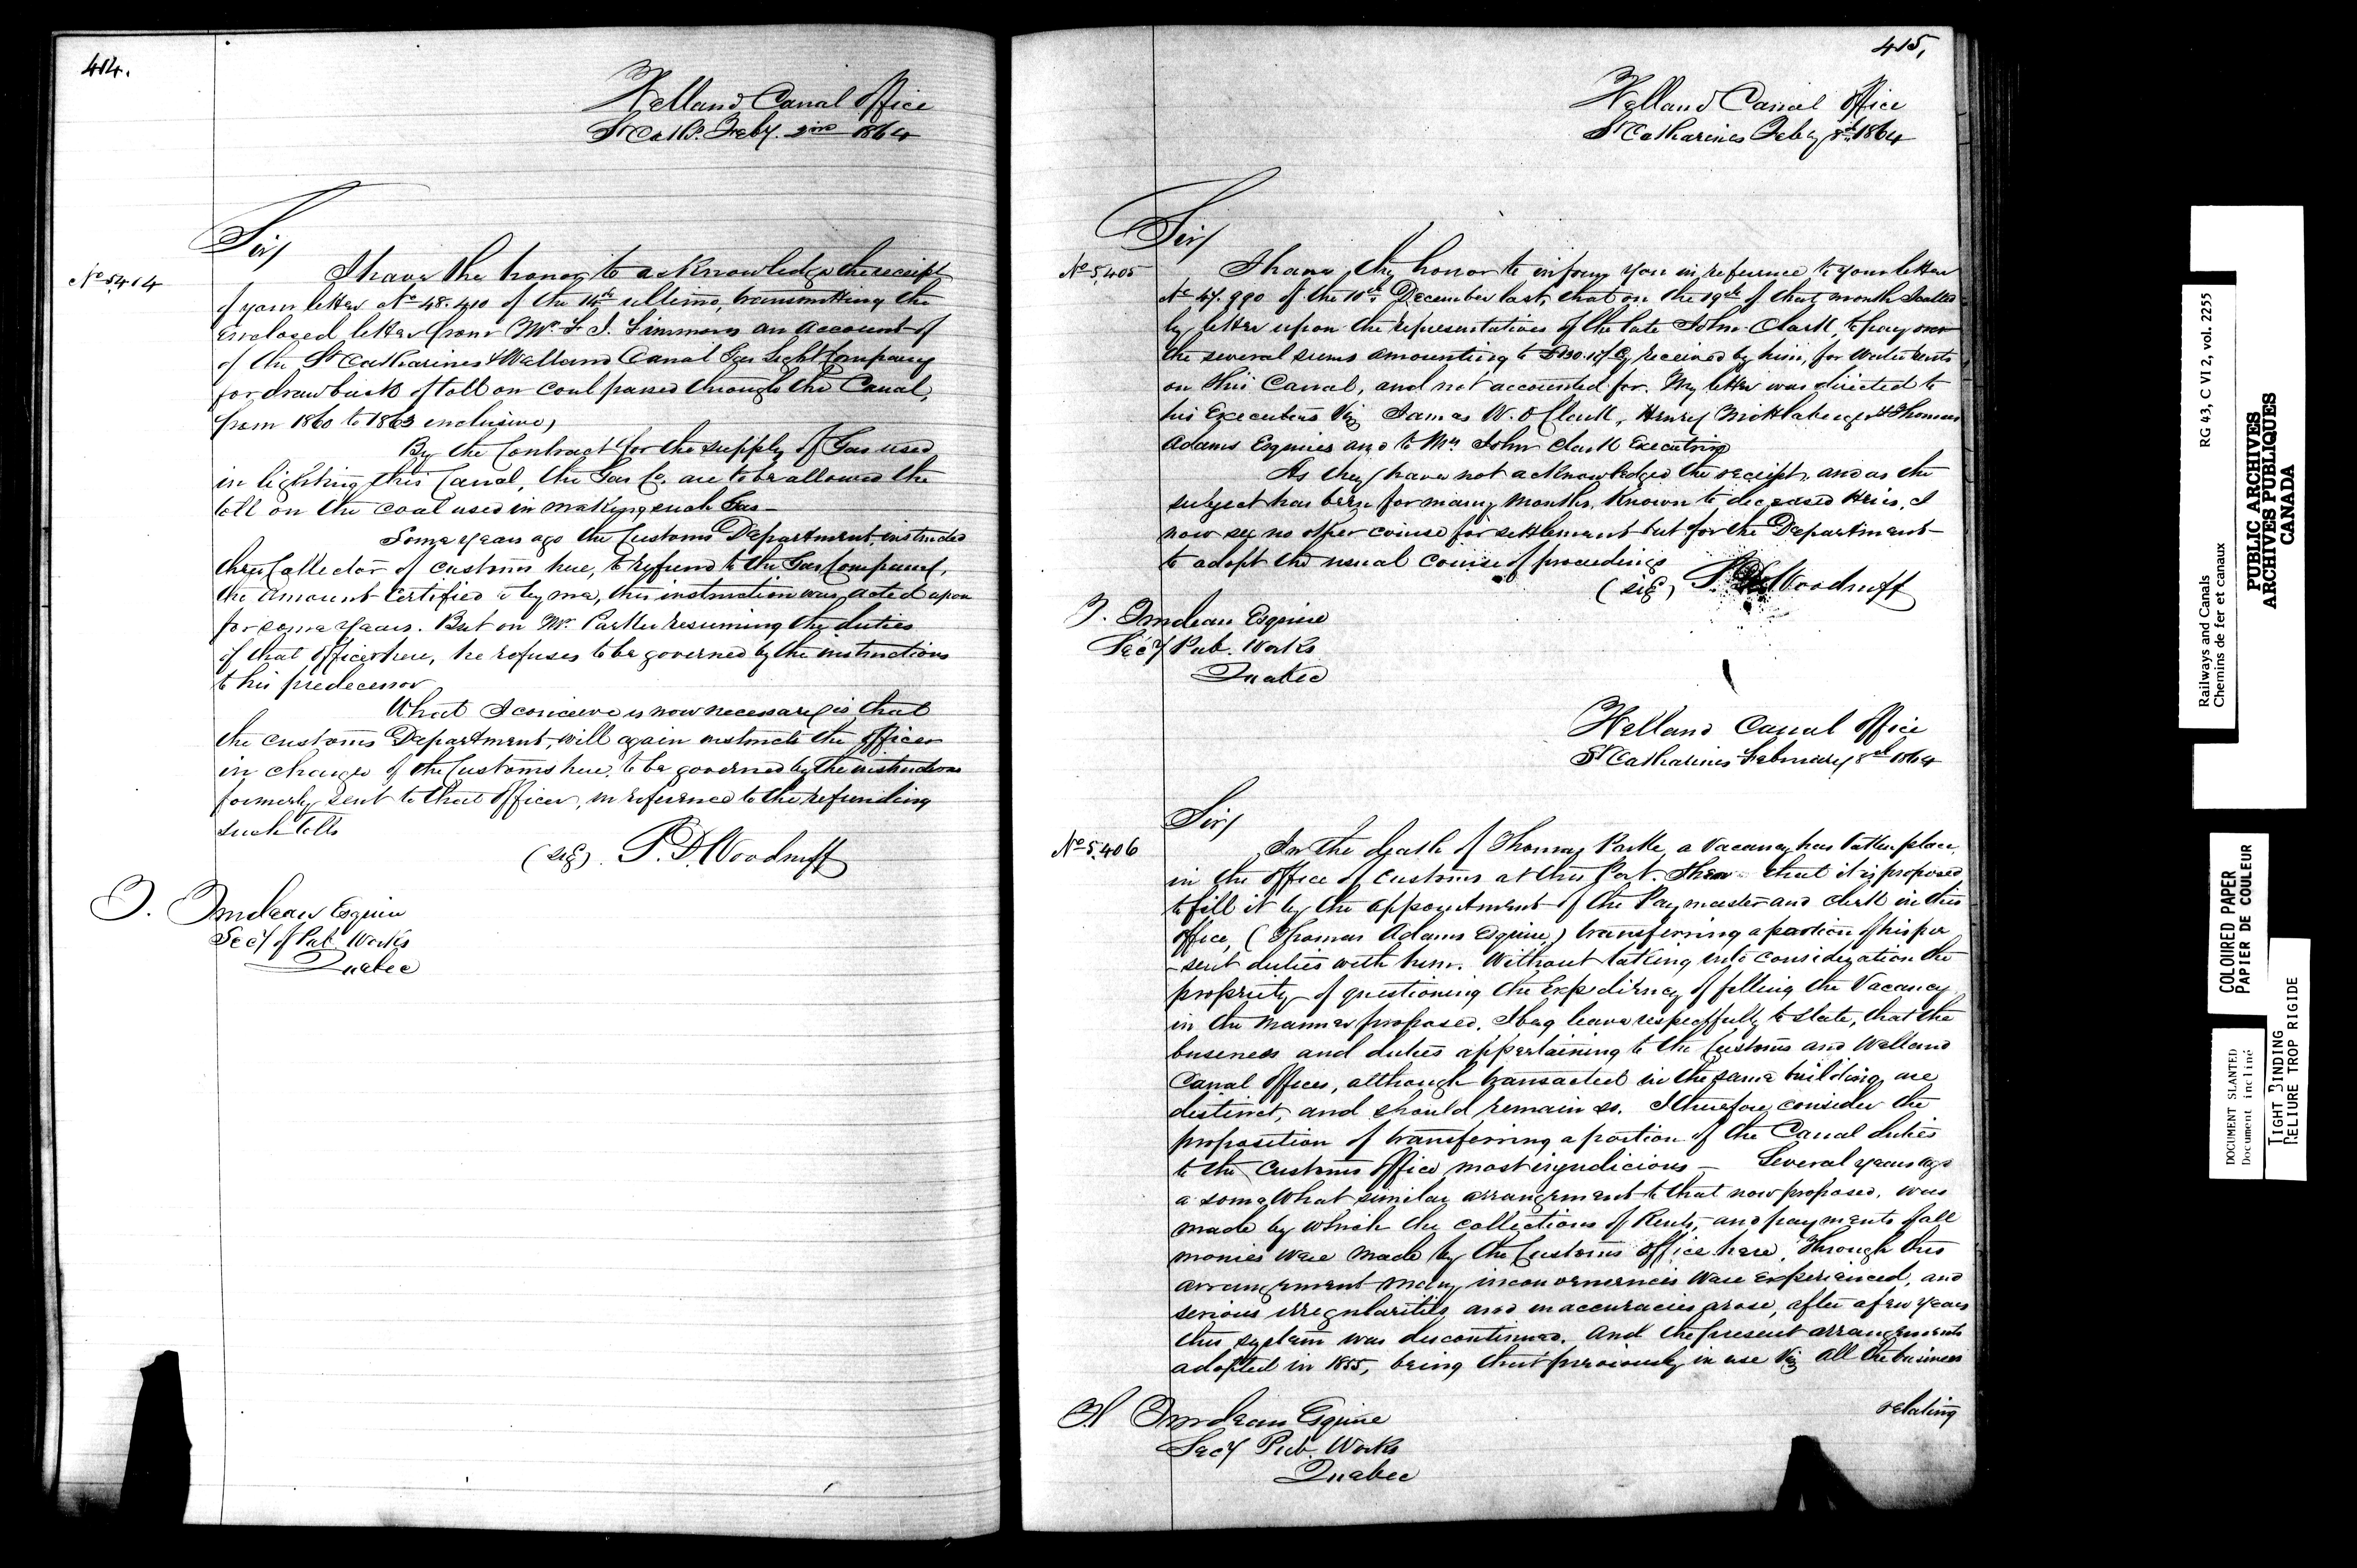 414.
Welland Canal Office
St Cath. Feby. 2nd 1864
Sir/
No 5,414
I have the honor to acknowledge the receipt
of your letter No 48.410 of the 14th ultimo, transmitting the
enclosed letter from Mr. J. Simmons an account of
of the St Catharines & Welland Canal Gas Light Company
for drawback of toll on coal passed through the Canal,
from 1860 to 1863 inclusive,
By the Contract for the supply of Gas used
in lighting this Canal, the Gas Co. are to be allowed the
toll on the coal used in making such Gas -
Some years ago the Customs Department, instructed
the Collector of Customs here, to refund to the Gas Company,
the amount certified to by me, this instruction was acted upon
for some years. But on Mr. Parke resuming the duties
of that office here, he refuses to be governed by the instructions
to his predecessor
What I conceive is now necessary is, that
the Customs Department, will again instruct the officer
in charge of the Customs here, to be governed by the instructions
formerly sent to that officer, in reference to the refunding
such tolls
(sig). S. D. Woodruff
T. Trudeau Esquire
Secy of Pub Works
Quebec
415,
Welland Canal Office
St Catharines Feby 8th 1864
Sir/
No 5,405
I have the honor to inform you in reference to your letter
No 47.990 of the 10th December last, that on the 19th of that month I called
by letter upon the representatives of the late John Clark, to pay over
the several sums amounting to received by him, for water rents
on this Canal, and not accounted for. My letter was directed to
his Executors Viz James W. O Clark, Henry Mittleberger & Thomas
Adams Esquires and to Mrs John Clark Executrix
As they have not acknowledged the receipt, and as the
subject has been for many months, known to deceased Heirs, I
now see no other course for settlement but for the Department
to adopt the usual course of proceedings
(sig) S. D. Woodruff
T. Trudeau Esquire
Secy Pub. Works
Quebec
Welland Canal Office
St Catharines February 8th 1864
Sir/
No 5,406
In the death of Thomas Parke a vacancy has taken place,
in the Office of Customs at this Port. that it is proposed
to fill it by the appointment of the Paymaster and clerk in this
office, (Thomas Adams Esquire,) transferring a portion of his pre
-sent duties with him. Without taking into consideration the
propriety of questioning the Expediency of filling the Vacancy
in the manner proposed, I beg leave respectfully to state, that the
business and duties appertaining to the Customs and Welland
Canal offices, although transacted in the same building are
distinct, and should remain so. I therefore consider the
proposition of transferring a portion of the Canal duties
to the Customs Office most injudicious - Several years ago
a somewhat similar arrangement to that now proposed, was
made by which the collections of Rents, and payments of all
monies were made by the Customs Office here, Through this
arrangement many inconveniences were experienced, and
serious irregularities and inaccuracies arose, after a few years
this system was discontinued. And the present arrangements
adopted in 1855, being that previously in use Viz All the business
relating
T. Trudeau Esquire
Secy Pub. Works
Quebec
Railways and Canals
Chemins de fer et canaux
RG 43, C VI 2, vol. 2255
PUBLIC ARCHIVES
ARCHIVES PUBLIQUES
CANADA
COLOURED PAPER
PAPIER DE COULEUR
DOCUMENT SLANTED
Document incliné
TIGHT BINDING
RELIURE TROP RIGIDE